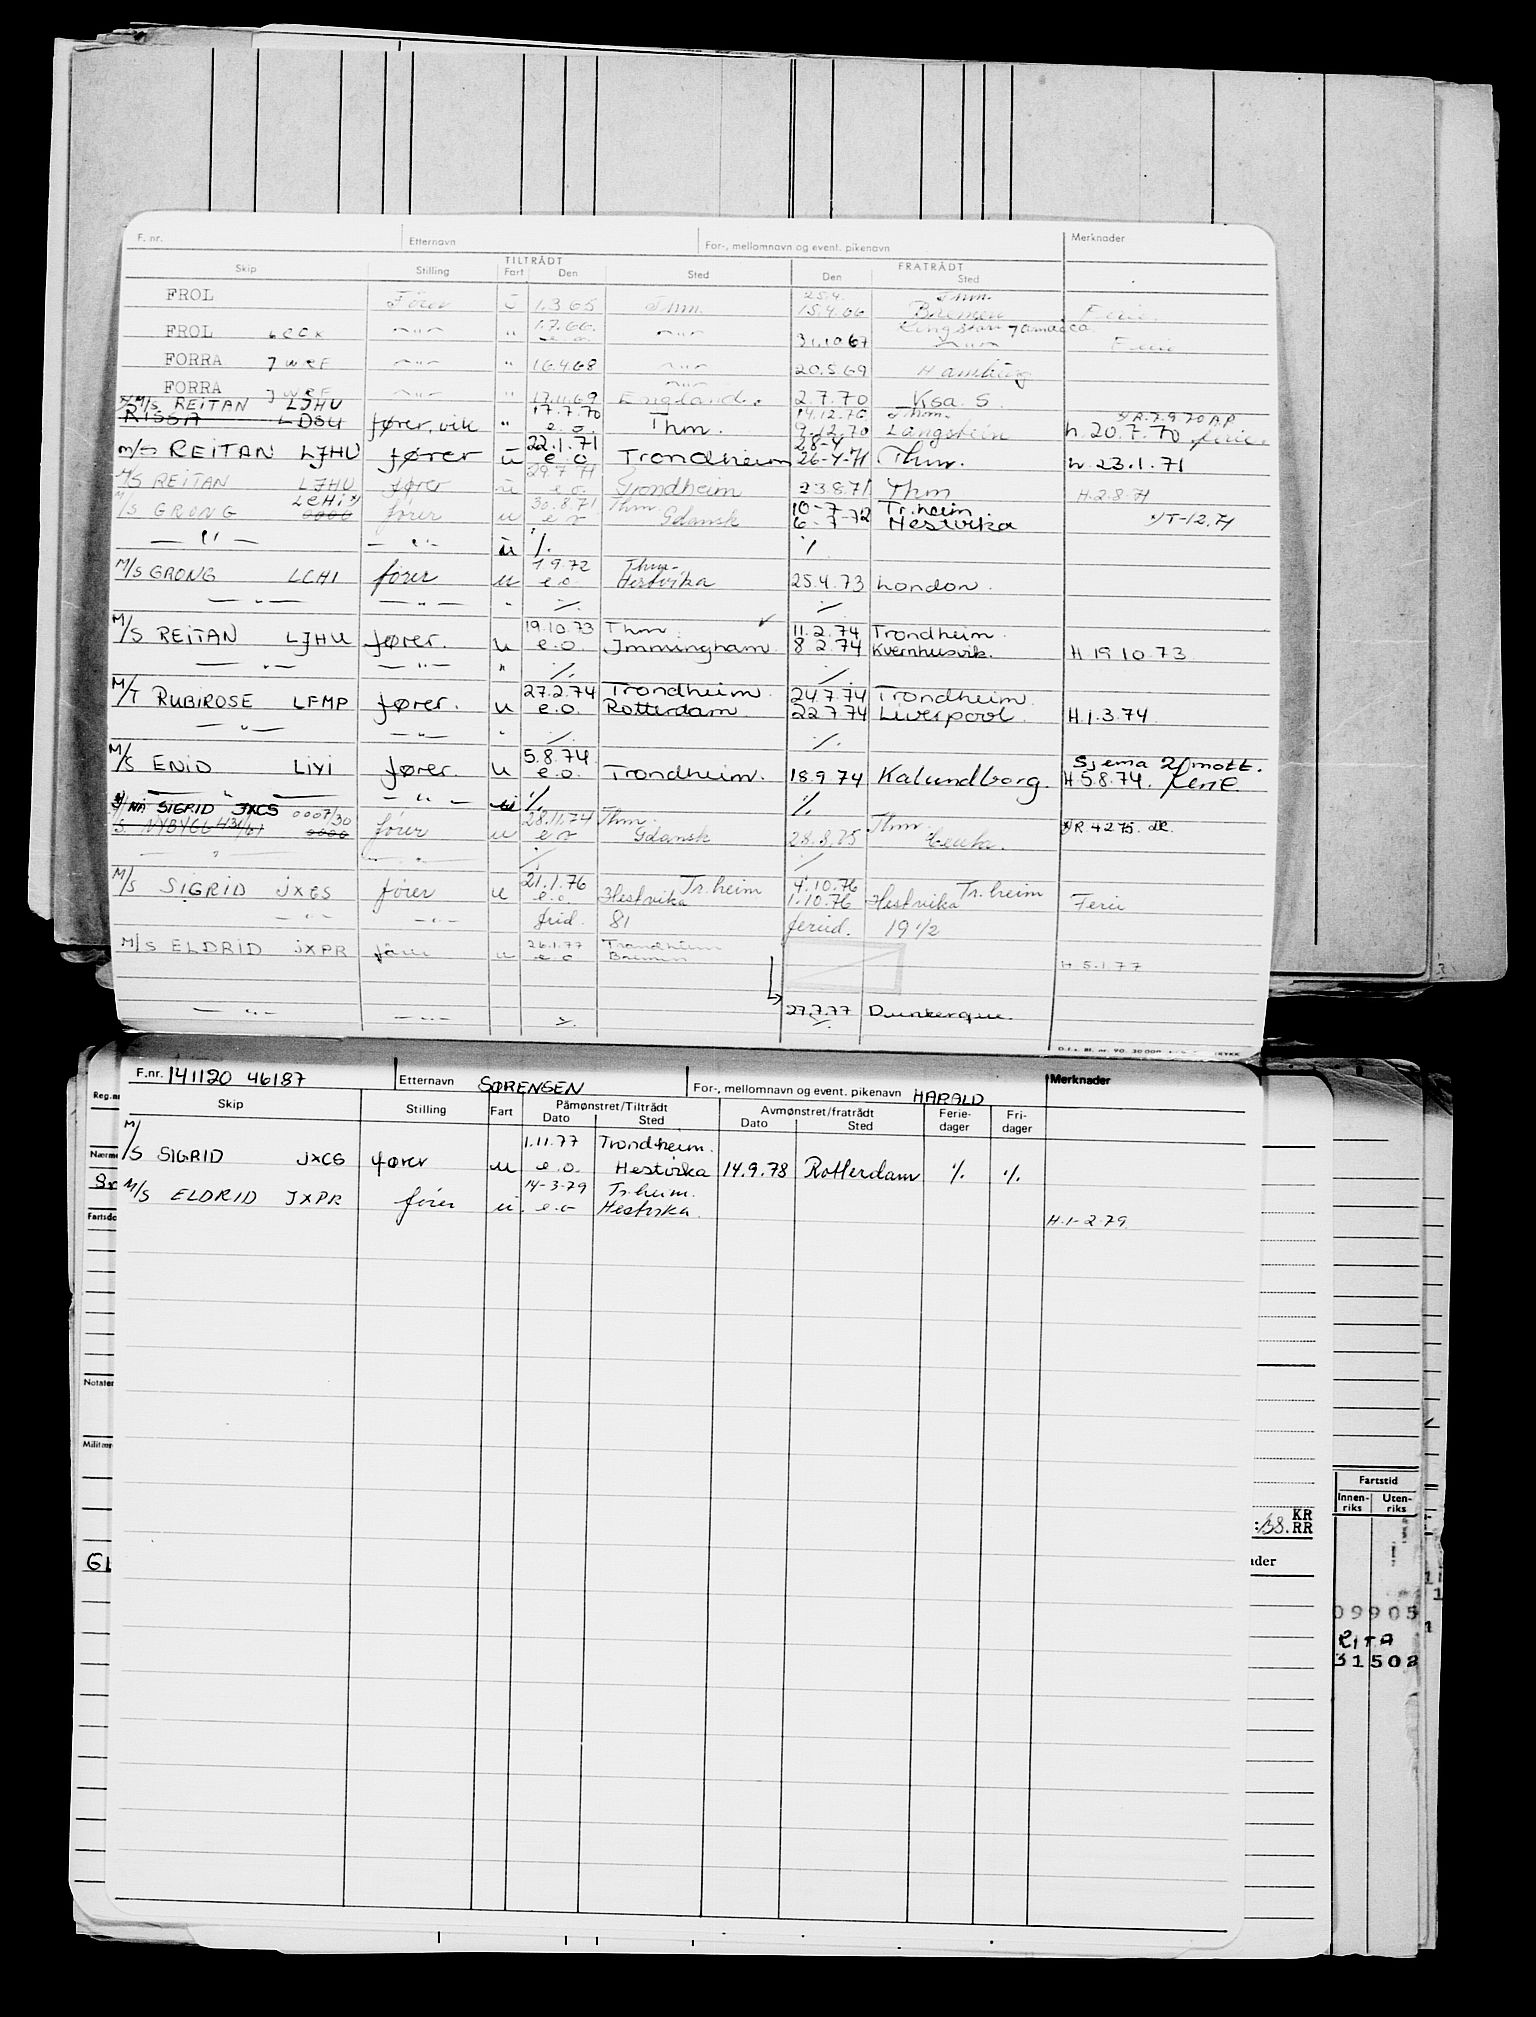 F. nr. Etternavn For-, mellomnavn og event. pikenavn Merknader
TILTRÅDT FRATRÅDT
Skip Stilling Fart Den Sted Den Sted
FROL Fører u 1.3 65 Thm. 25.4. Thm.
15.4.66 Bremen Ferie.
FROL LCCX —"— " 1.7.66. —"— Kingston Jamaica
e.o. 31.10 67 —"— Ferie
FORRA JWRF —"— " 16.4.68 —"— 20.5 69 Hamburg
FORRA JWRF —"— " 17.11.69 England. 2.7.70 Ksa. S
M/S REITAN LJHU 17.7.70 14.12.70 Thm. x) R.7.9 70 AP
RISSA LDSU fører, vik " e.o. Thm. 9.12.70 Langstein h. 20.7.70 ferie.
M/S REITAN LJHU fører u 22.1.71 28-4
e o Trondheim 26-4-71 Thm. h. 23.1.71
M/S REITAN LJHU fører u 29.7 71
e.o. Trondheim 23.8.71 Thm H.2.8.71
M/S GRONG LCHI x) fører u 30.8.71 Thm. 10-7- Tr.heim
0000 e o Gdansk 6-7-72 Hestvika x) T-12.71
— " — — " — u ·/. ·/.
M/S GRONG LCHI fører u 1 9.72 Thm.
e.o. Hestvika 25.4.73 London.
— " — — " — " ·/. ·/.
M/S REITAN LJHU fører. u 19.10.73 Thm. 11.2.74 Trondheim.
e.o. Immingham. 8 2.74 Kvernhusvik. H 19 10.73
— " — — " — " ·/. ·/.
M/T RUBIROSE LFMP fører. u 27.2.74 Trondheim. 24.7.74 Trondheim
e.o. Rotterdam 22.7.74 Liverpool. H.1.3.74.
— " — — " — " ·/. ·/.
M/S ENID LIYI fører. u 5.8.74. Sjema 2/mott.
e.o. Trondheim. 18.9 74 Kalundborg. H 5.8.74. ferie
— " — — " — ·/. ·/.
x) NÅ SIGRID JXCS 0007/30 28.11.74 Thm. Thm.
S. NYBYGG 0000 fører u e o Gdansk 28.8.75 x) R 4 2 75.
— " — — " — ·/. ·/.
M/S SIGRID JXCS fører u 21.1.76 Tr.heim 4.10.76 Tr.heim
e.o. Hestvika 1.10.76 Hestvika Ferie
— " — — " — frid. 81 feried. 19 1/2
M/S ELDRID JXPR fører u 26.1.77 Trondheim
e o Bremen H 5.1.77
— " — — " — ·/. 27.7.77 Dunkerque.
·/.
F.nr. 141120 46187 Etternavn SØRENSEN For-, mellomnavn og event. pikenavn HARALD Merknader
Skip Stilling Fart Påmønstret/Tiltrådt Avmønstret/fratrådt Ferie-dager Fri-dager
Dato Sted Dato Sted
M/S SIGRID JXCS fører u 1.11.77 Trondheim.
e.o. Hestvika 14.9.78 Rotterdam ·/. ·/.
M/S ELDRID JXPR fører u. 14-3-79 Tr.heim.
e.o Hestvika. H.1-2.79.
Fartstid
Innen-riks Uten-riks
KR
RR
09905
RITA
31502